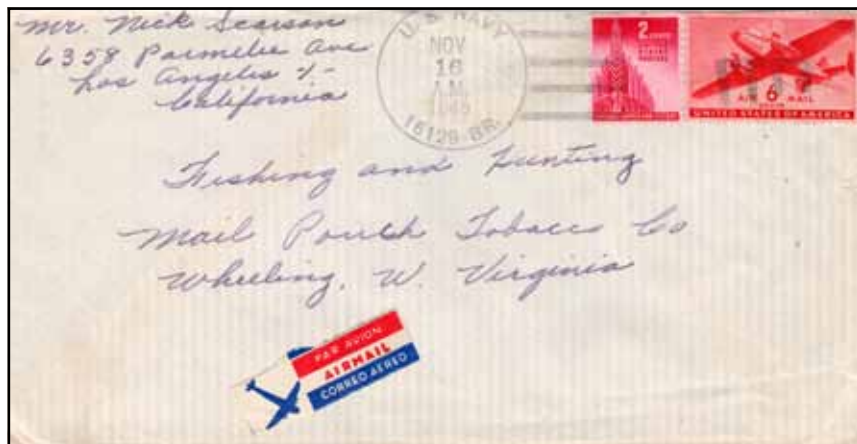 Mr. Nick Scarson
6358 Parmelee Ave
Los Angeles 1-
California
U.S. NAVY
NOV
16
A.M.
1945
16129-BR.
2 CENTS
AIR 6¢ MAIL
UNITED STATES OF AMERICA
Fishing and Hunting
Mail Pouch Tobacco Co
Wheeling, W. Virginia
PAR AVION
AIRMAIL
CORREO AEREO